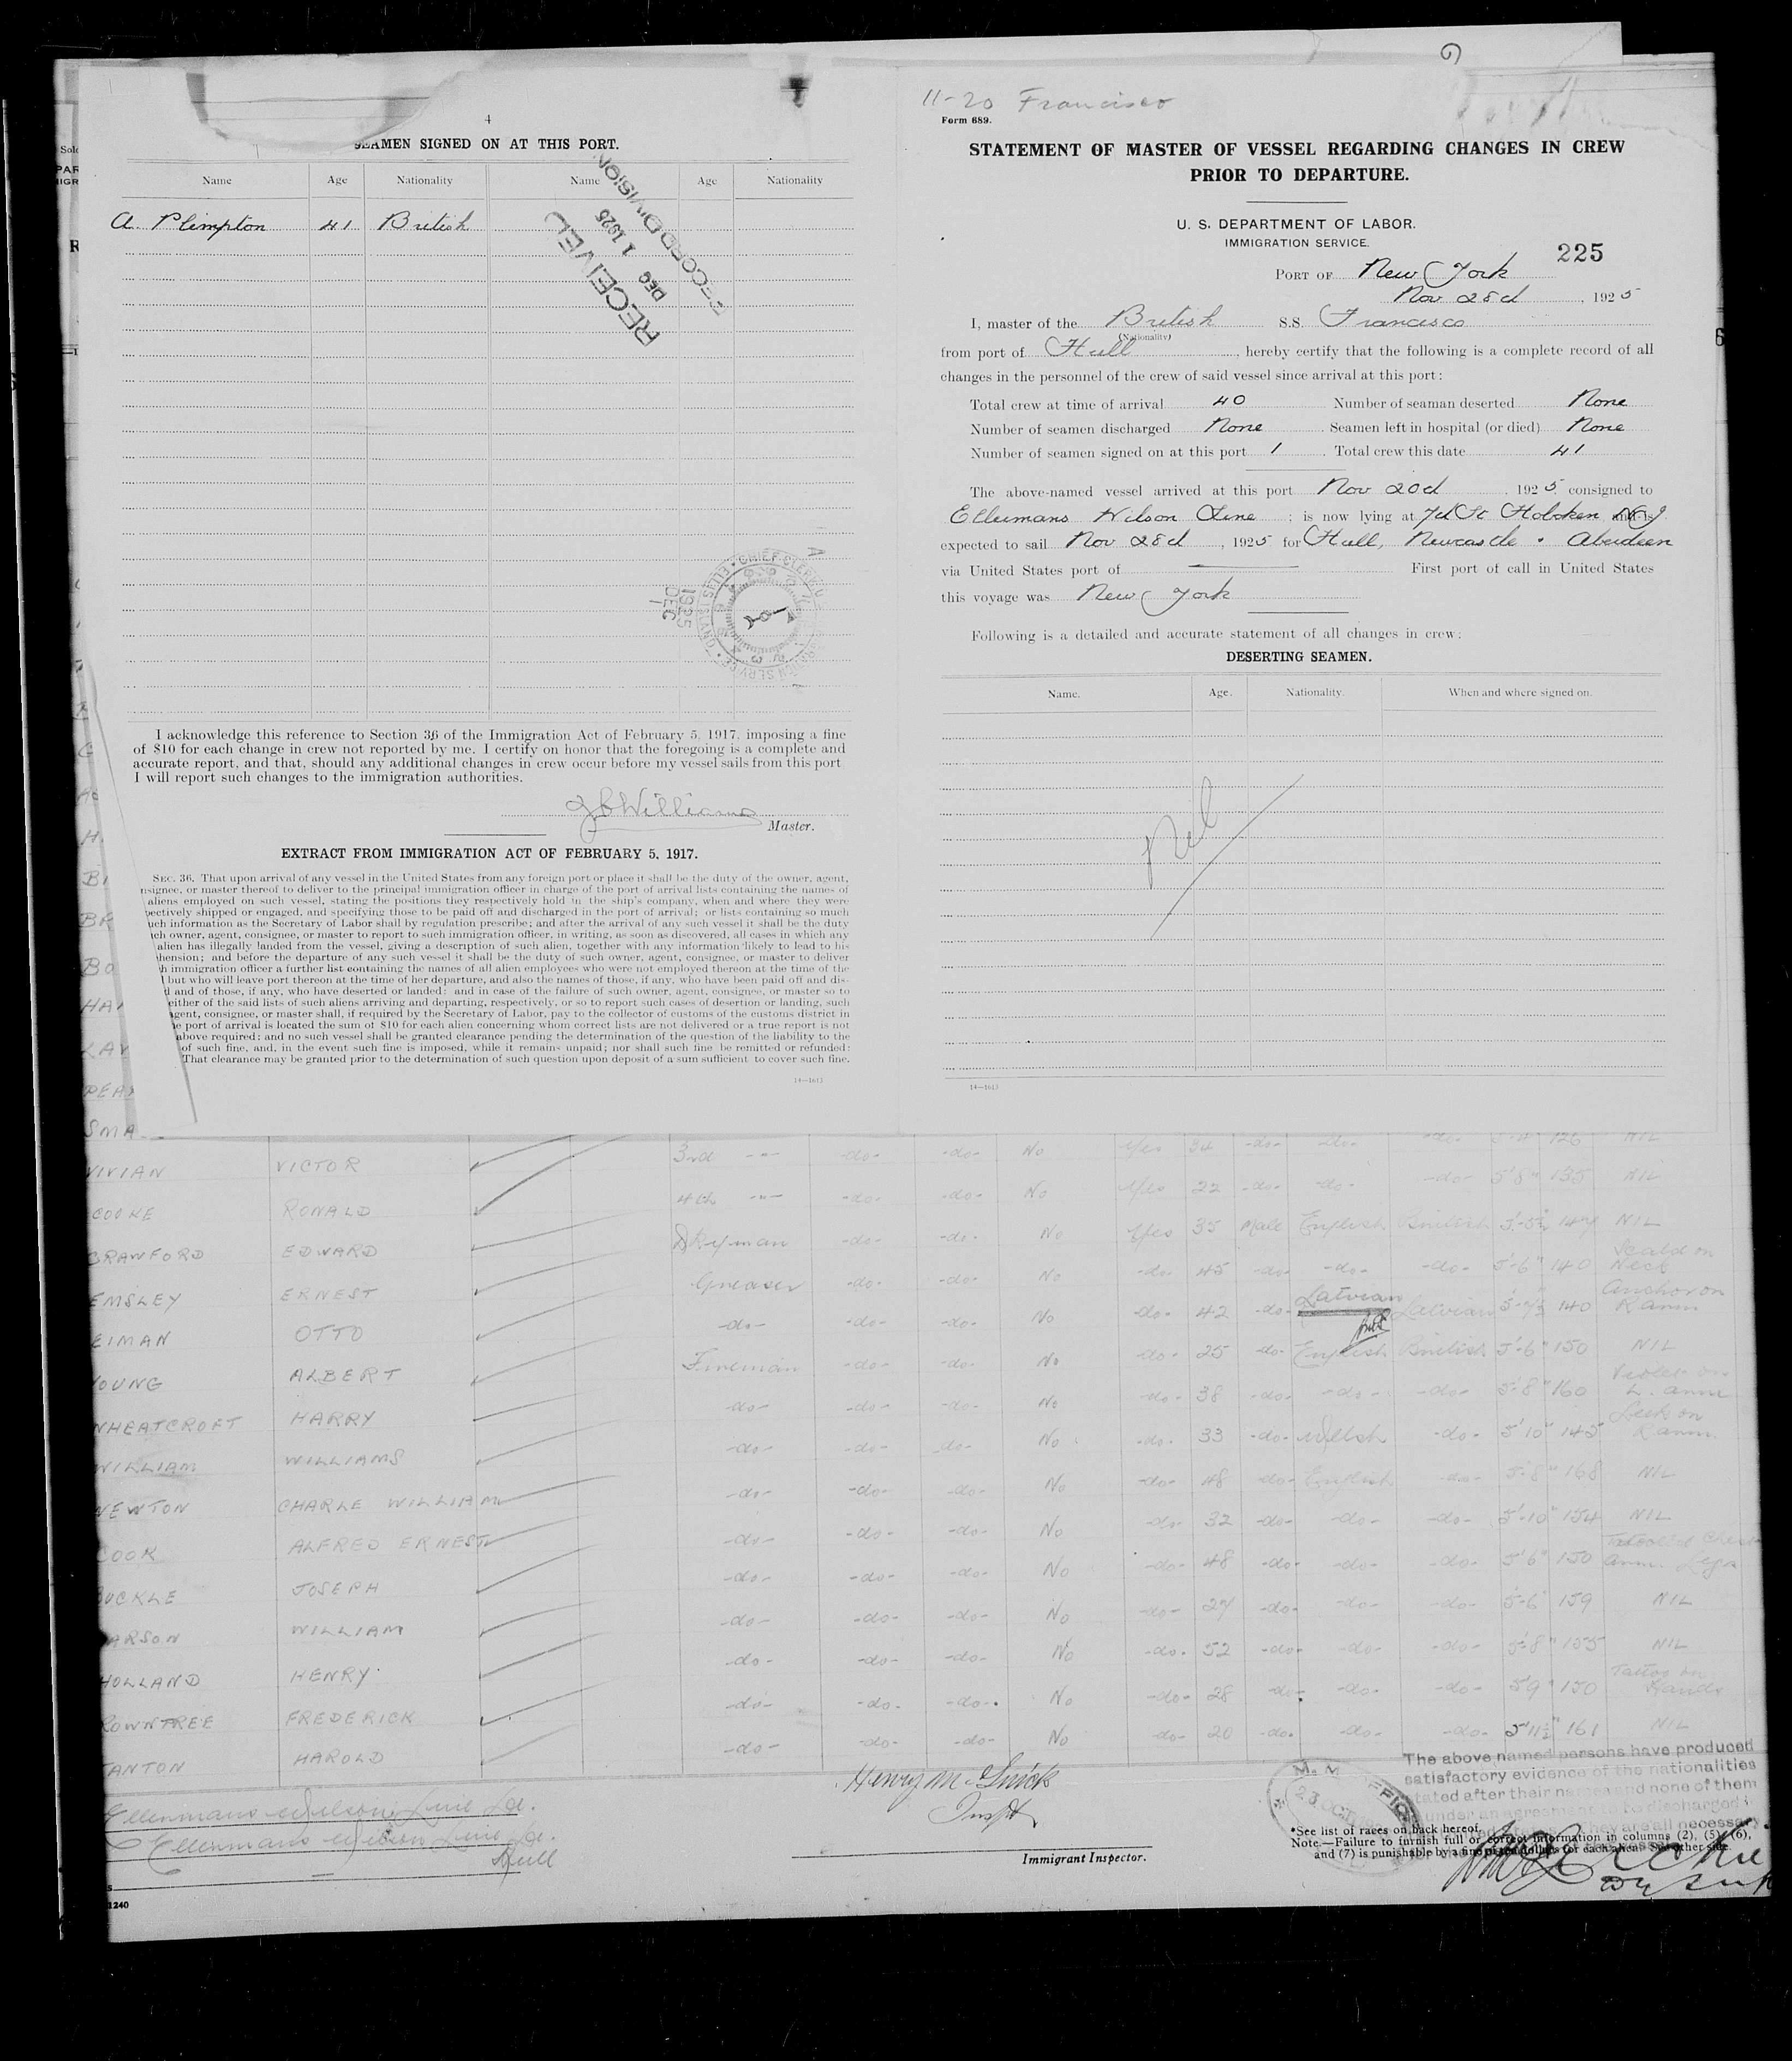 4
SEAMEN SIGNED ON AT THIS PORT.
Name Age Nationality Name Age Nationality
A. Plimpton 41 British
RECEIVED
DEC 1 1925
RECORD DIVISION
1925
DEC
1
I acknowledge this reference to Section 36 of the Immigration Act of February 5, 1917, imposing a fine
of $10 for each change in crew not reported by me. I certify on honor that the foregoing is a complete and
accurate report, and that, should any additional changes in crew occur before my vessel sails from this port
I will report such changes to the immigration authorities.
Williams
Master.
EXTRACT FROM IMMIGRATION ACT OF FEBRUARY 5, 1917.
SEC. 36. That upon arrival of any vessel in the United States from any foreign port or place it shall be the duty of the owner, agent,
nsignee, or master thereof to deliver to the principal immigration officer in charge of the port of arrival lists containing the names of
aliens employed on such vessel, stating the positions they respectively hold in the ship's company, when and where they were
pectively shipped or engaged, and specifying those to be paid off and discharged in the port of arrival; or lists containing so much
uch information as the Secretary of Labor shall by regulation prescribe; and after the arrival of any such vessel it shall be the duty
uch owner, agent, consignee, or master to report to such immigration officer, in writing, as soon as discovered, all cases in which any
alien has illegally landed from the vessel, giving a description of such alien, together with any information likely to lead to his
hension; and before the departure of any such vessel it shall be the duty of such owner, agent, consignee, or master to deliver
h immigration officer a further list containing the names of all alien employees who were not employed thereon at the time of the
but who will leave port thereon at the time of her departure, and also the names of those, if any, who have been paid off and dis-
d and of those, if any, who have deserted or landed; and in case of the failure of such owner, agent, consignee, or master so to
either of the said lists of such aliens arriving and departing, respectively, or so to report such cases of desertion or landing, such
agent, consignee, or master shall, if required by the Secretary of Labor, pay to the collector of customs of the customs district in
e port of arrival is located the sum of $10 for each alien concerning whom correct lists are not delivered or a true report is not
above required; and no such vessel shall be granted clearance pending the determination of the question of the liability to the
of such fine, and, in the event such fine is imposed, while it remains unpaid; nor shall such fine be remitted or refunded:
That clearance may be granted prior to the determination of such question upon deposit of a sum sufficient to cover such fine.
14—1613
11-20 Francisco
Form 689.
STATEMENT OF MASTER OF VESSEL REGARDING CHANGES IN CREW
PRIOR TO DEPARTURE.
U. S. DEPARTMENT OF LABOR.
IMMIGRATION SERVICE.
225
PORT OF New York
Nov 28d, 1925
I, master of the British S.S. Francisco
(Nationality)
from port of Hull, hereby certify that the following is a complete record of all
changes in the personnel of the crew of said vessel since arrival at this port:
Total crew at time of arrival 40 Number of seaman deserted None
Number of seamen discharged None Seamen left in hospital (or died) None
Number of seamen signed on at this port 1 Total crew this date 41
The above-named vessel arrived at this port Nov 20d, 1925 consigned to
Ellermans Wilson Line; is now lying at 7th St Hoboken NJ and is
expected to sail Nov 28d, 1925 for Hull, Newcastle • Aberdeen
via United States port of First port of call in United States
this voyage was New York
Following is a detailed and accurate statement of all changes in crew:
DESERTING SEAMEN.
Name. Age. Nationality. When and where signed on.
Nil
14—1613
VIVIAN VICTOR 3rd -"- -do- -do- No Yes 34 -do- -do- -do- 5'-4" 126 NIL
COOKE RONALD 4th -"- -do- -do- No Yes 22 -do- -do- -do- 5'8" 135 NIL
CRAWFORD EDWARD Dkyman -do- -do- No Yes 35 Male English British 5'-5½ 147 NIL
EMSLEY ERNEST Greaser -do- -do- No -do- 45 -do- -do- -do- 5'-6" 140 Scald on Neck
EIMAN OTTO -do- -do- -do- No -do- 42 -do- Latvian Latvian 140 Anchor on R arm
YOUNG ALBERT Fireman -do- -do- No -do- 25 -do- English British 5'-6" 150 NIL
WHEATCROFT HARRY -do- -do- -do- No -do- 38 -do- -do- -do- 5'-8" 160 Violet on L. arm
WILLIAM WILLIAMS -do- -do- -do- No -do- 33 -do- Welsh -do- 5'10" 145 Leek on R arm.
NEWTON CHARLE WILLIAM -do- -do- -do- No -do- 48 -do- English -do- 5'-8" 168 NIL
COOK ALFRED ERNEST -do- -do- -do- No -do- 32 -do- -do- -do- 5'-10" 154 NIL
UCKLE JOSEPH -do- -do- -do- No -do- 48 -do- -do- -do- 5'6" 150 Tattooed Chest arm. Legs
ARSON WILLIAM -do- -do- -do- No -do- 27 -do- -do- -do- 5-6" 159 NIL
HOLLAND HENRY -do- -do- -do- No -do- 52 -do- -do- -do- 5'-8" 155 NIL
ROWNTREE FREDERICK -do- -do- -do- No -do- 28 -do- -do- -do- 5'9" 150 Tattoo on Hands
TANTON HAROLD -do- -do- -do- No -do- 20 -do- -do- -do- 5'11½" 161 NIL
Ellermans Wilson Line Ld.
Ellermans Wilson Line Ld.
Hull
1240
Immigrant Inspector.
The above named persons have produced
satisfactory evidence of the nationalities
stated after their names and none of them
*See list of races on back hereof.
Note.—Failure to furnish full or correct information in columns (2), (5), (6),
and (7) is punishable by a fine of ten dollars for each alien. See other side.